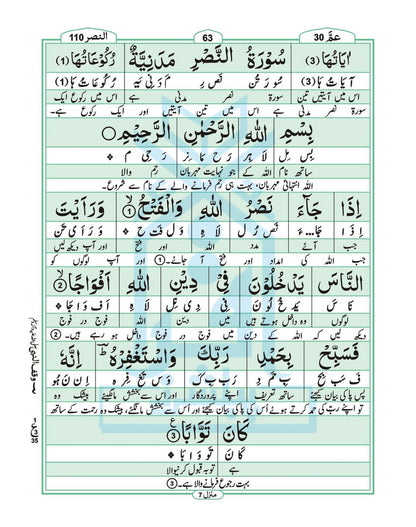 النصر 110
63
عمّ 30
اٰیَاتُهَا (3)
سُوْرَةُ النَّصْرِ مَدَنِيَّةٌ
رُكُوْعَاتُهَا (1)
آ یَا تُ ہَا (3)
سُو رَ تُن نَص رِ مَ دَ نِی یَہ
رُ کُو عَا تُ ہَا (1)
اس میں آیتیں تین
سورۃ نصر مدنی ہے
اس میں رکوع ایک
سورۃ نصر مدنی ہے اس میں تین آیتیں اور ایک رکوع ہے۔
بِسْمِ اللهِ الرَّحْمٰنِ الرَّحِيْمِ
بِس مِل لَا ہِر رَح مَا نِر رَ حِی م
ساتھ نام اللہ کے جو نہایت مہربان رحم والا
اللہ انتہائی مہربان، بہت ہی رحم فرمانے والے کے نام سے شروع۔
اِذَا جَآءَ نَصْرُ اللهِ وَالْفَتْحُ ﴿1﴾ وَرَاَيْتَ
اِ ذَا جَا۔۔۔ ءَ نَص رُ ل لَا ہِ وَل فَت ح وَ رَ اَی تَ
جب آئے مدد اللہ اور فتح اور آپ دیکھ لیں
جب اللہ کی امداد اور فتح آ جائے۔ (1) اور آپ لوگوں کو
النَّاسَ يَدْخُلُوْنَ فِيْ دِيْنِ اللهِ اَفْوَاجًا ﴿2﴾
نَا سَ يَد خُ لُو نَ فِی دِی نِل لَا ہِ اَف وَا جَا
لوگوں وہ داخل ہوتے ہیں میں دین اللہ فوج در فوج
دیکھ لیں کہ اللہ کے دین میں فوج در فوج داخل ہو رہے ہیں۔ (2)
فَسَبِّحْ بِحَمْدِ رَبِّكَ وَاسْتَغْفِرْهُ ؕ اِنَّهٗ
فَ سَب بِح بِ حَم دِ رَب بِ كَ وَس تَغ فِر ہ اِن نَ ہُو
پس پاکی بیان کیجئے ساتھ تعریف اپنے رب اور اس سے بخشش مانگئے بیشک وہ
تو اپنے رب کی حمد کرتے ہوئے اُس کی پاکی بیان کیجئے اور اس سے بخشش مانگئے، بیشک وہ رحمت کے ساتھ
كَانَ تَوَّابًا ﴿3﴾
كَا نَ تَو وَا بَا
ہے توبہ قبول کرنیوالا
بہت رجوع فرمانے والا ہے۔ (3)
منزل 7